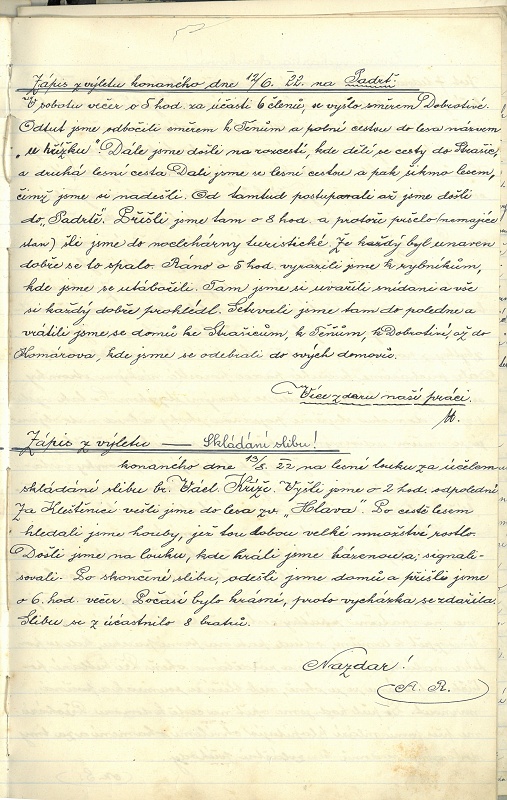 Zápis z výletu konaného dne 12/6. 22. na Padrť.
V sobotu večer o 5 hod. za účasti 6 členů, se vyšlo směrem k Dobrotivé.
Odtut jsme odbočili směrem k Těňům a polní cestou do lesa názvem
"u křížku". Dále jsme došli na rozcestí, kde dělí se cesty do Strašic,
a druhá lesní cesta. Dali jsme se lesní cestou a pak šikmo lesem,
čímž jsme si nadešli. Od tamtud postupovali až jsme došli
do "Padrtě". Přišli jsme tam o 8 hod. a protože pršelo (nemajíce
stan) šli jsme do noclehárny turistické. Že každý byl unaven
dobře se to spalo. Ráno o 5 hod. vyrazili jsme k rybníkům,
kde jsme se utábořili. Tam jsme si uvařili snídani a vše
si každý dobře prohlédl. Setrvali jsme tam do poledne a
vrátili jsme se domů ke Strašicům, k Těňům, k Dobrotivé, až do
Komárova, kde jsme se odebrali do svých domovů.
Více zdaru naší práci.
Zápis z výletu — Skládání slibu!
konaného dne 13/8. 22 na lesné louku za účelem
skládání slibu br. Václ. Kříže. Vyšli jsme o 2 hod. odpoledne
Za Kleštěnicí vešli jsme do lesa zv. "Hlava". Po cestě lesem
hledali jsme houby, jež tou dobou velké množství rostlo.
Došli jsme na louku, kde hráli jsme házenou a signali-
sovali. Po skončené slibu, odešli jsme domů a přišli jsme
o 6. hod. večer. Počasí bylo krásné, proto vycházka se zdařila.
Slibu se z účastnilo 8 bratrů.
Nazdar!
A. R.